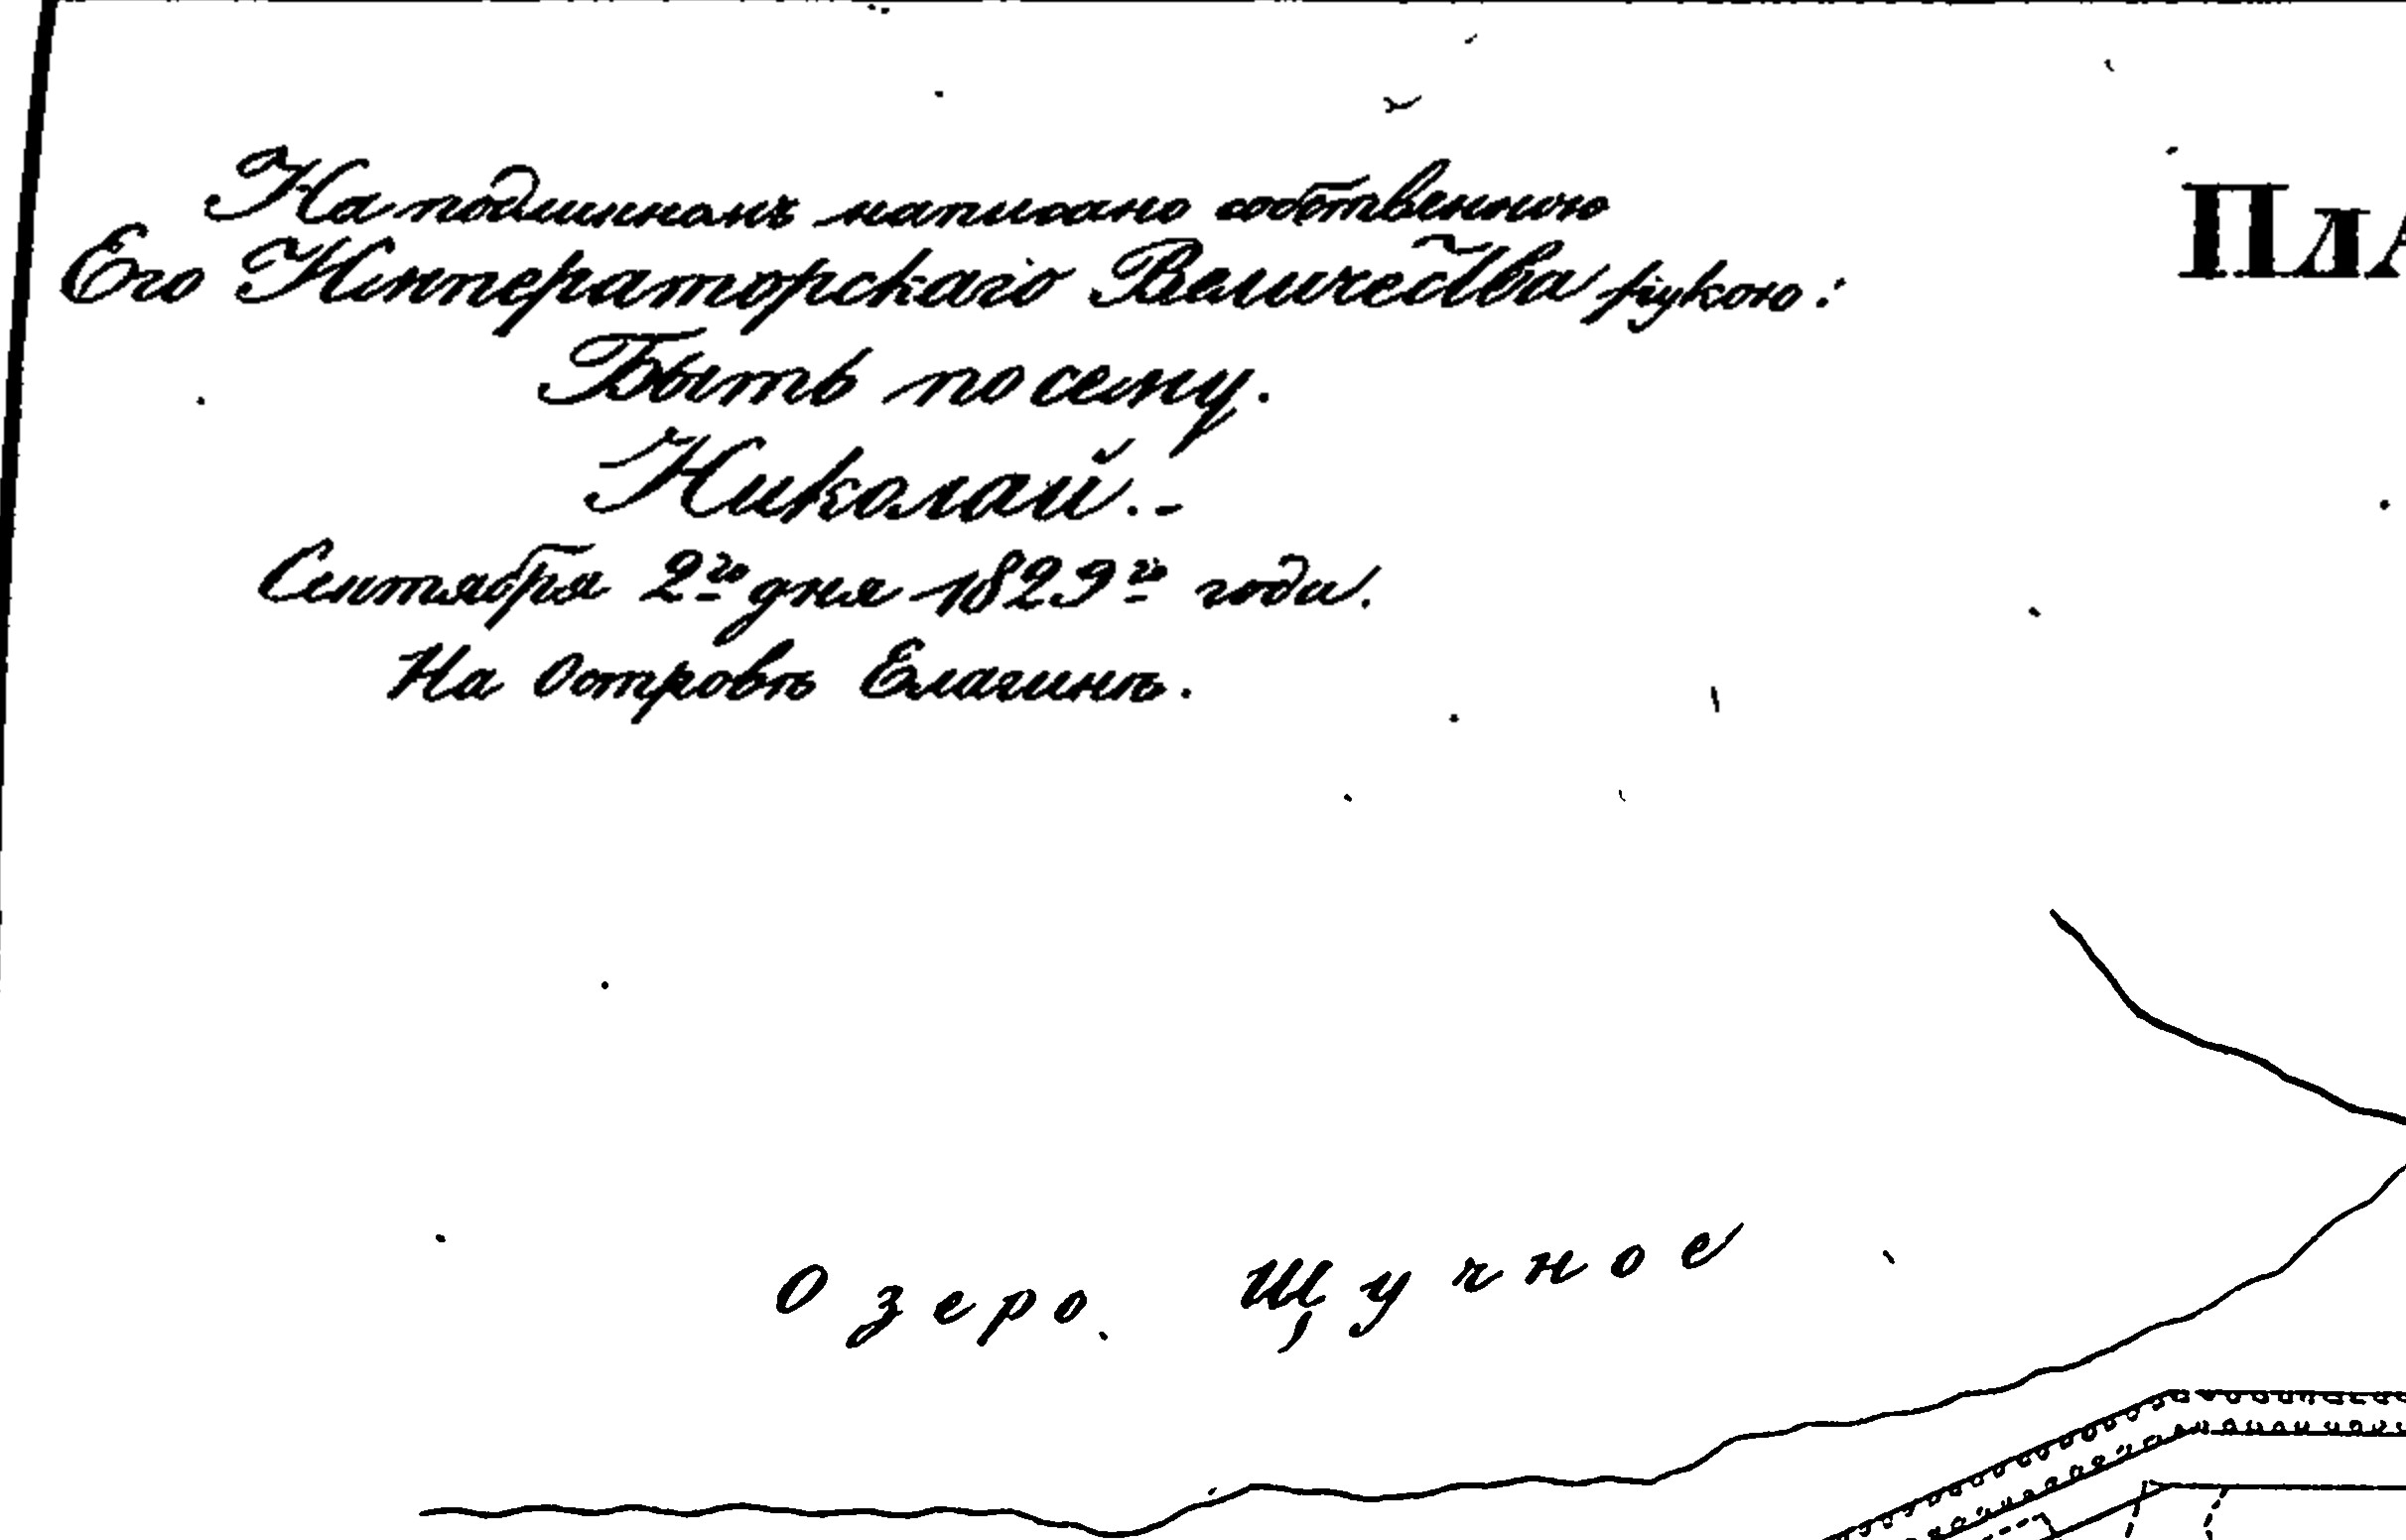 На подлинномъ написано собственною
Его Императорскаго Величества рукою:
ПЛА
Быть по сему.
Николай.-
Сентября 2го дня 1829го года.
На Островѣ Елагинѣ.
Озеро. Щучное